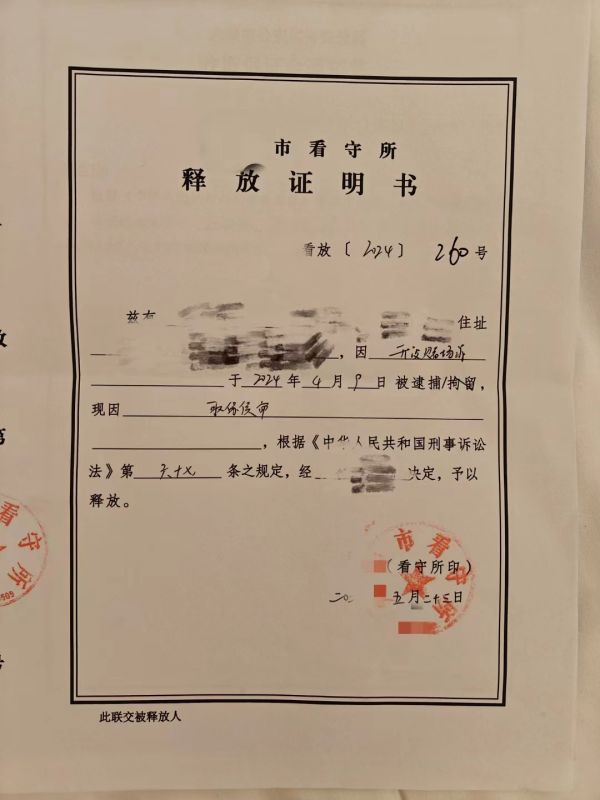 市看守所
释放证明书
看放〔2024〕260号
兹有 住址
，因 开设赌场罪
于 2024 年 4 月 9 日被逮捕/拘留，
现因 取保候审
，根据《中华人民共和国刑事诉讼
法》第 六十七 条之规定，经 决定，予以
释放。
市看守所
（看守所印）
五月二十三日
此联交被释放人
看守所